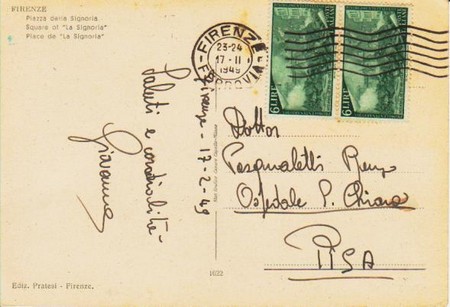 FIRENZE
Piazza della Signoria.
Square of "La Signoria"
Place de "La Signoria"
FIRENZE
23-24
17-II
1949
FERROVIA
6 LIRE
6 LIRE
Firenze - 17-2-49
Saluti e cordialità -
Giovanna
Dottor
Pasqualetti Renzo
Ospedale S. Chiara
PISA
1622
Ediz. Pratesi - Firenze.